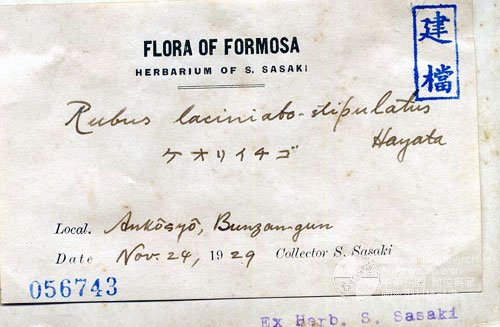 FLORA OF FORMOSA
HERBARIUM OF S. SASAKI
建檔
Rubus laciniato-stipulatus
Hayata
ケオリイチゴ
Local. Ankōsyō, Bunzan-gun
Date Nov. 24, 1929 Collector S. Sasaki
056743
Ex Herb. S. Sasaki